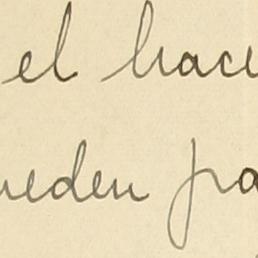 el hace
ueden pa